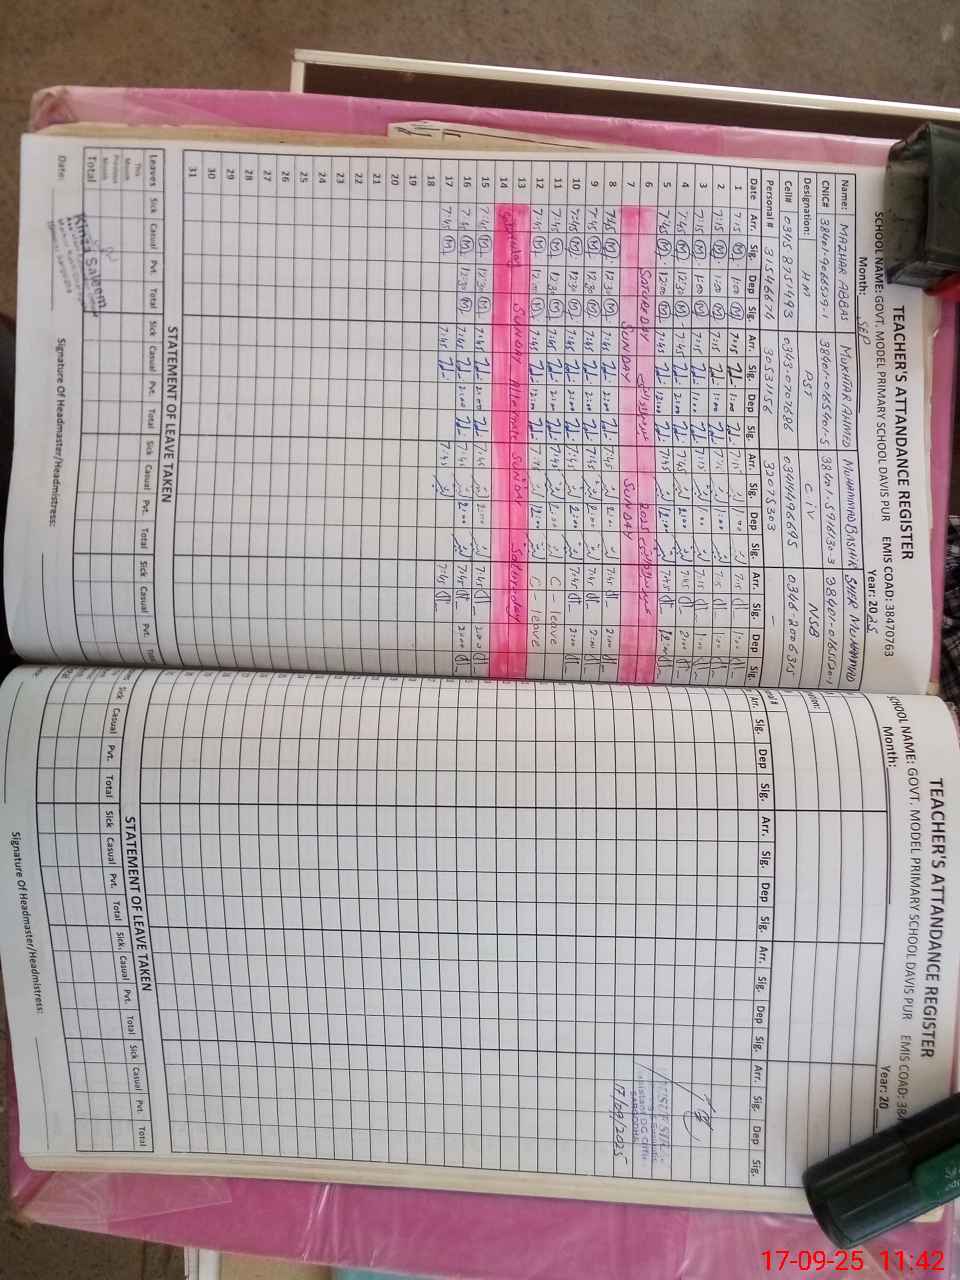 TEACHER'S ATTANDANCE REGISTER
SCHOOL NAME: GOVT. MODEL PRIMARY SCHOOL DAVIS PUR EMIS COAD: 38470763
Month: SEP Year: 2025
Name: MAZHAR ABBAS MUKHTAR AHMED MUHAMMAD BASHIR SHER MUHAMMAD
CNIC# 38401-9066529-1 38401-0165401-5 38401-5916130-3
Designation: HM PST C iv NSB
Cell# 0345 8751493 0343-0707686 03414496695
Personal # 31546674 3053156 32075303 -
Date Arr. Sig. Dep Sig. Arr. Sig. Dep Sig. Arr. Sig. Dep Sig. Arr. Sig. Dep Sig.
1 7:15 1:00 7:15 1:00 7:15 1:00 7:15 1:00
2 7:15 1:00 7:15 1:00 7:15 1:00 7:15 1:00
3 7:15 1:00 7:15 1:00 7:15 1:00 7:15 1:00
4 7:45 12:30 7:45 2:00 7:45 2:00 7:45 2:00
5 7:45 12:00 7:45 12:00 7:45 12:00 7:45 12:00
6 SATURDAY 2025
7 SUNDAY SUNDAY
8 7:45 12:30 7:45 2:00 7:45 2:00 7:45 2:00
9 7:45 12:30 7:45 2:00 7:45 2:00 7:45 2:00
10 7:45 12:30 7:45 2:00 7:45 2:00 7:45 2:00
11 7:45 12:30 7:45 2:00 7:45 2:00 C - leave
12 7:45 12:00 7:45 12:00 7:45 12:00 C - leave
13
14 SUNDAY
15 7:45 12:30 7:45 2:00 7:45 2:00 7:45 2:00
16 7:45 12:30 7:45 2:00 7:45 2:00 7:45 2:00
17 7:45 7:45 7:45 7:45
18
19
20
21
22
23
24
25
26
27
28
29
30
31
STATEMENT OF LEAVE TAKEN
Leaves Sick Casual Pvt. Total Sick Casual Pvt. Total Sick Casual Pvt. Total Sick Casual Pvt.
This Month
Previous Month
Total
Saleem
Date: Signature Of Headmaster/Headmistress:
TEACHER'S ATTANDANCE REGISTER
SCHOOL NAME: GOVT. MODEL PRIMARY SCHOOL DAVIS PUR EMIS COAD: 384
Month: Year: 20
Arr. Sig. Dep Sig. Arr. Sig. Dep Sig. Arr. Sig. Dep Sig. Arr. Sig. Dep Sig.
17/09/2025
STATEMENT OF LEAVE TAKEN
Sick Casual Pvt. Total Sick Casual Pvt. Total Sick. Casual Pvt. Total Sick Casual Pvt. Total
Signature Of Headmaster/Headmistress:
17-09-25 11:42